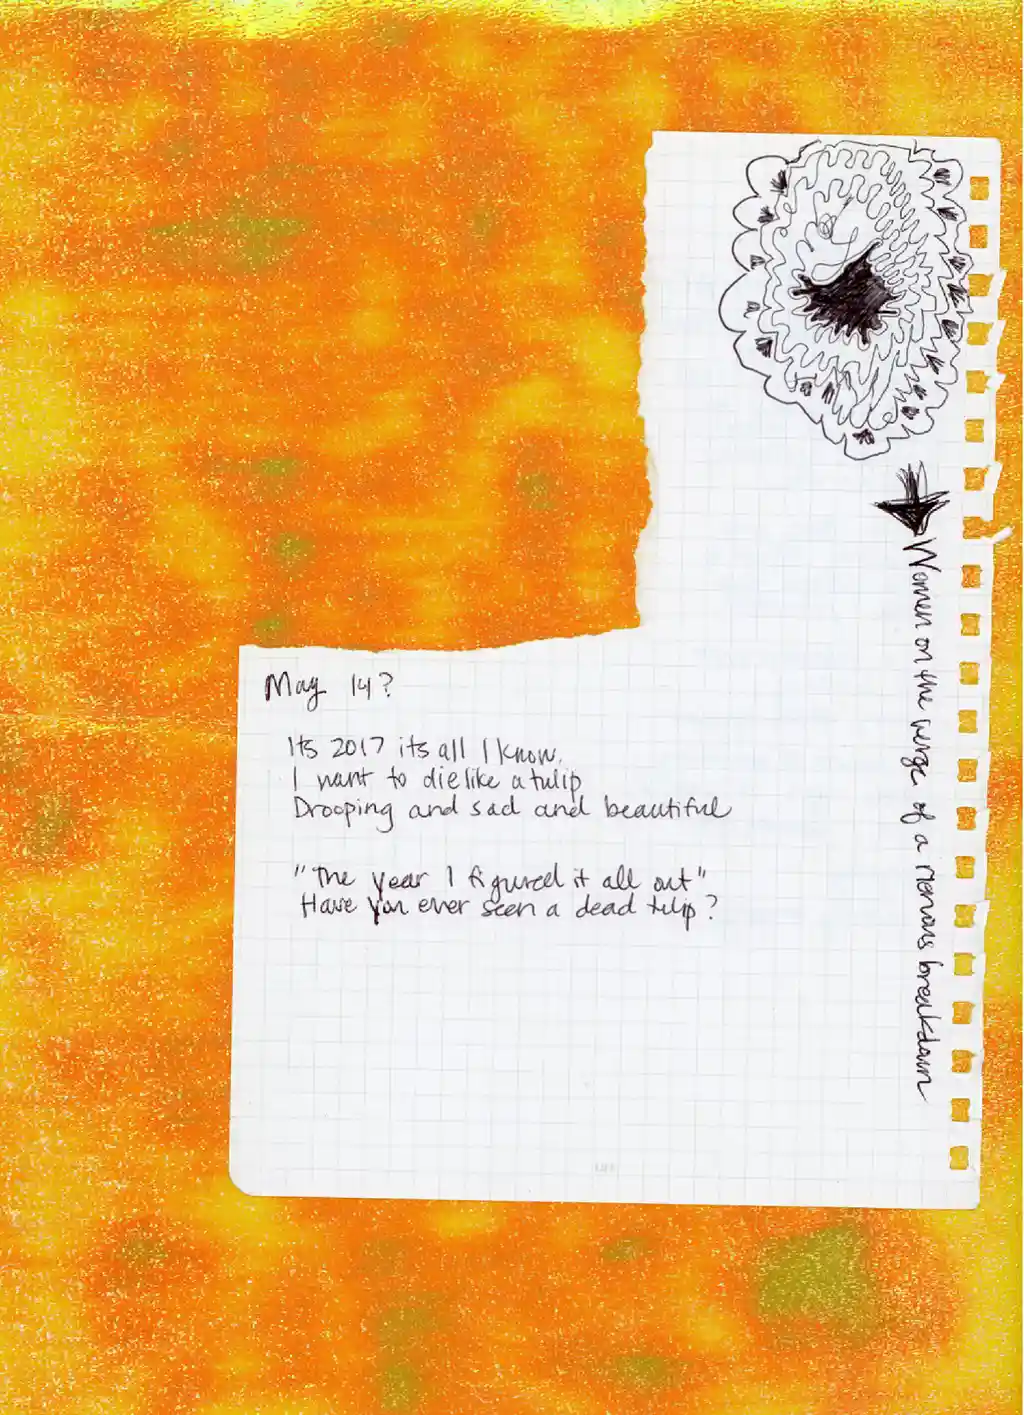 May 14?
Its 2017 its all I know.
I want to die like a tulip
Drooping and sad and beautiful
"The year I figured it all out"
Have you ever seen a dead tulip?
Women on the verge of a nervous breakdown